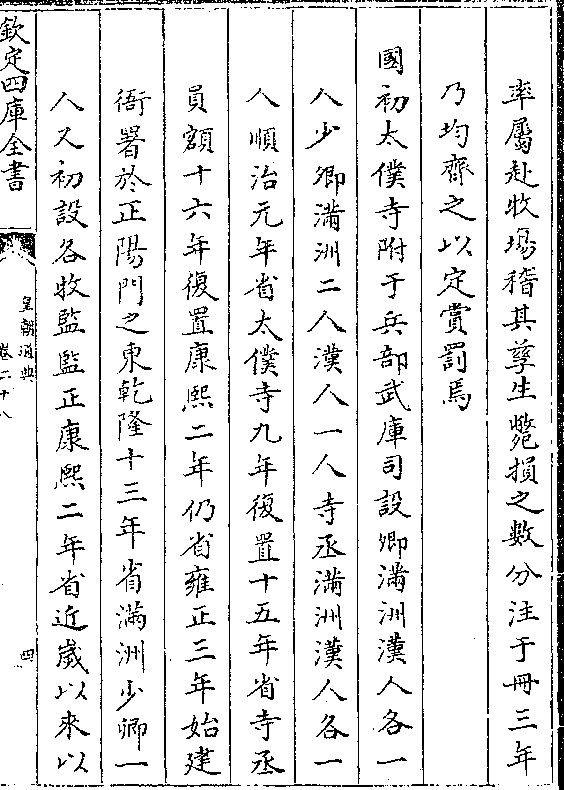 率屬赴牧塲稽其孳生斃損之數分注于冊三年
乃均齊之以定賞罰焉
國初太僕寺附于兵部武庫司設卿滿洲漢人各一
人少卿滿洲二人漢人一人寺丞滿洲漢人各一
人順治元年省太僕寺九年復置十五年省寺丞
員額十六年復置康熙二年仍省雍正三年始建
衙署於正陽門之東乾隆十三年省滿洲少卿一
人又初設各牧監監正康熙二年省近嵗以來以
欽定四庫全書
皇朝通典
卷二十八
四